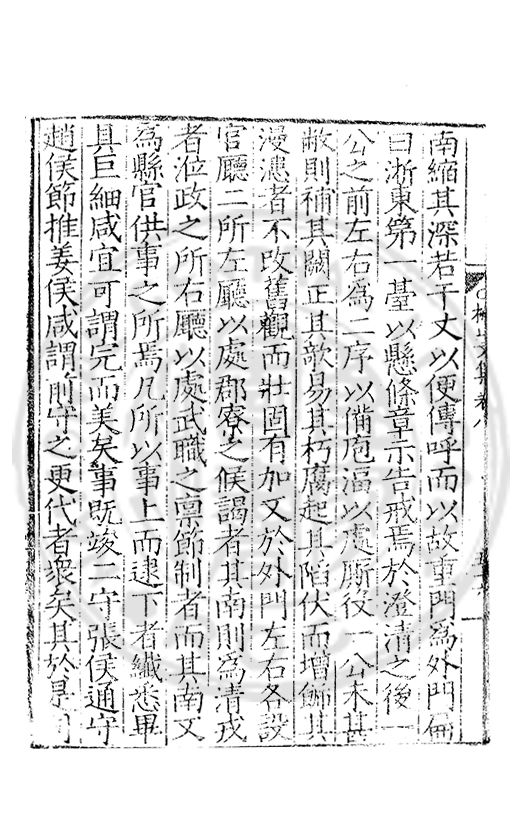 南縮其深若干丈以便傳呼而以故重門為外門扁
曰浙東第一臺以懸條章示告戒焉於澄清之後一
公之前左右為二序以備庖湢以處厮役一公未甚
敝則補其闕正其欹易其朽腐起其陷伏而增飾其
漫漶者不改舊觀而壯固有加又於外門左右各設
官廳二所左廳以處郡寮之候謁者其南則為清戎
者涖政之所右廳以處武職之禀節制者而其南又
為縣官供事之所焉凡所以事上而逮下者纎悉畢
具巨細咸宜可謂完而美矣事既竣二守張侯通守
趙侯節推姜侯咸謂前守之更代者衆矣其於是
文集卷八